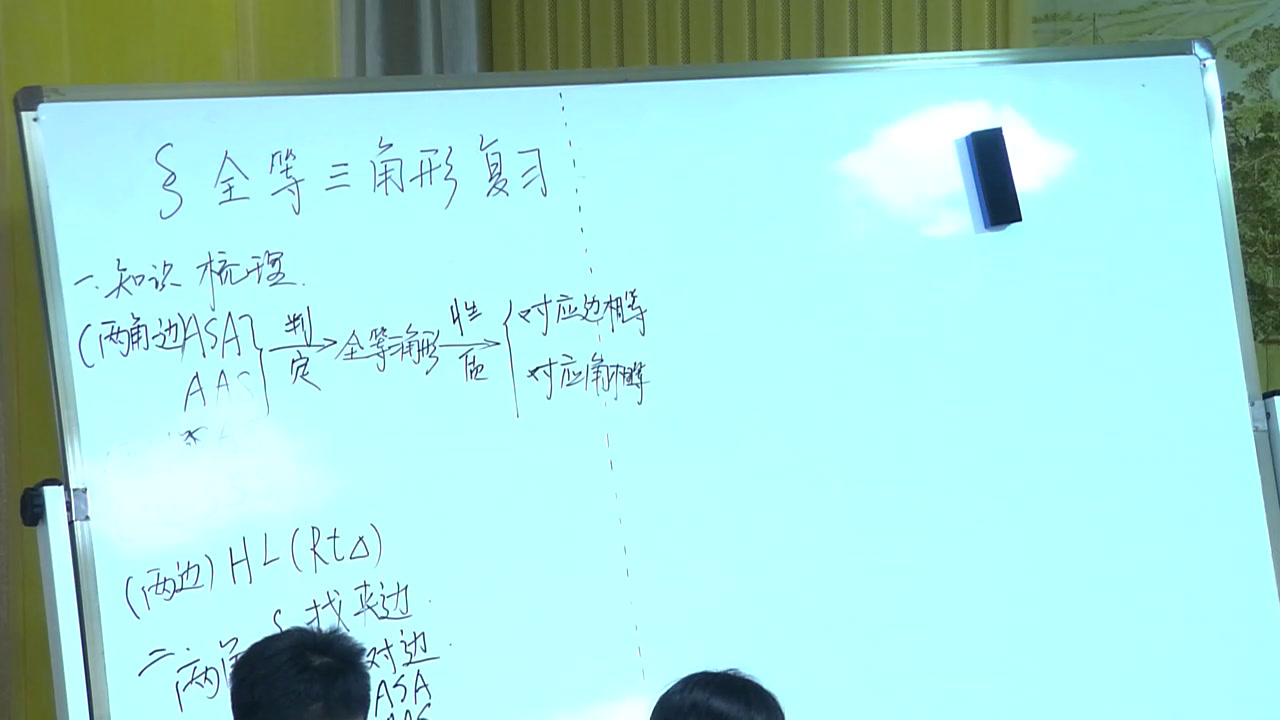 § 全等三角形复习
一.知识梳理.
(两角边)ASA 判定 全等三角形 性质 对应边相等
AAS 对应角相等
(两边)HL(Rt△)
找夹边.
二.两角 对边.
ASA
AAS